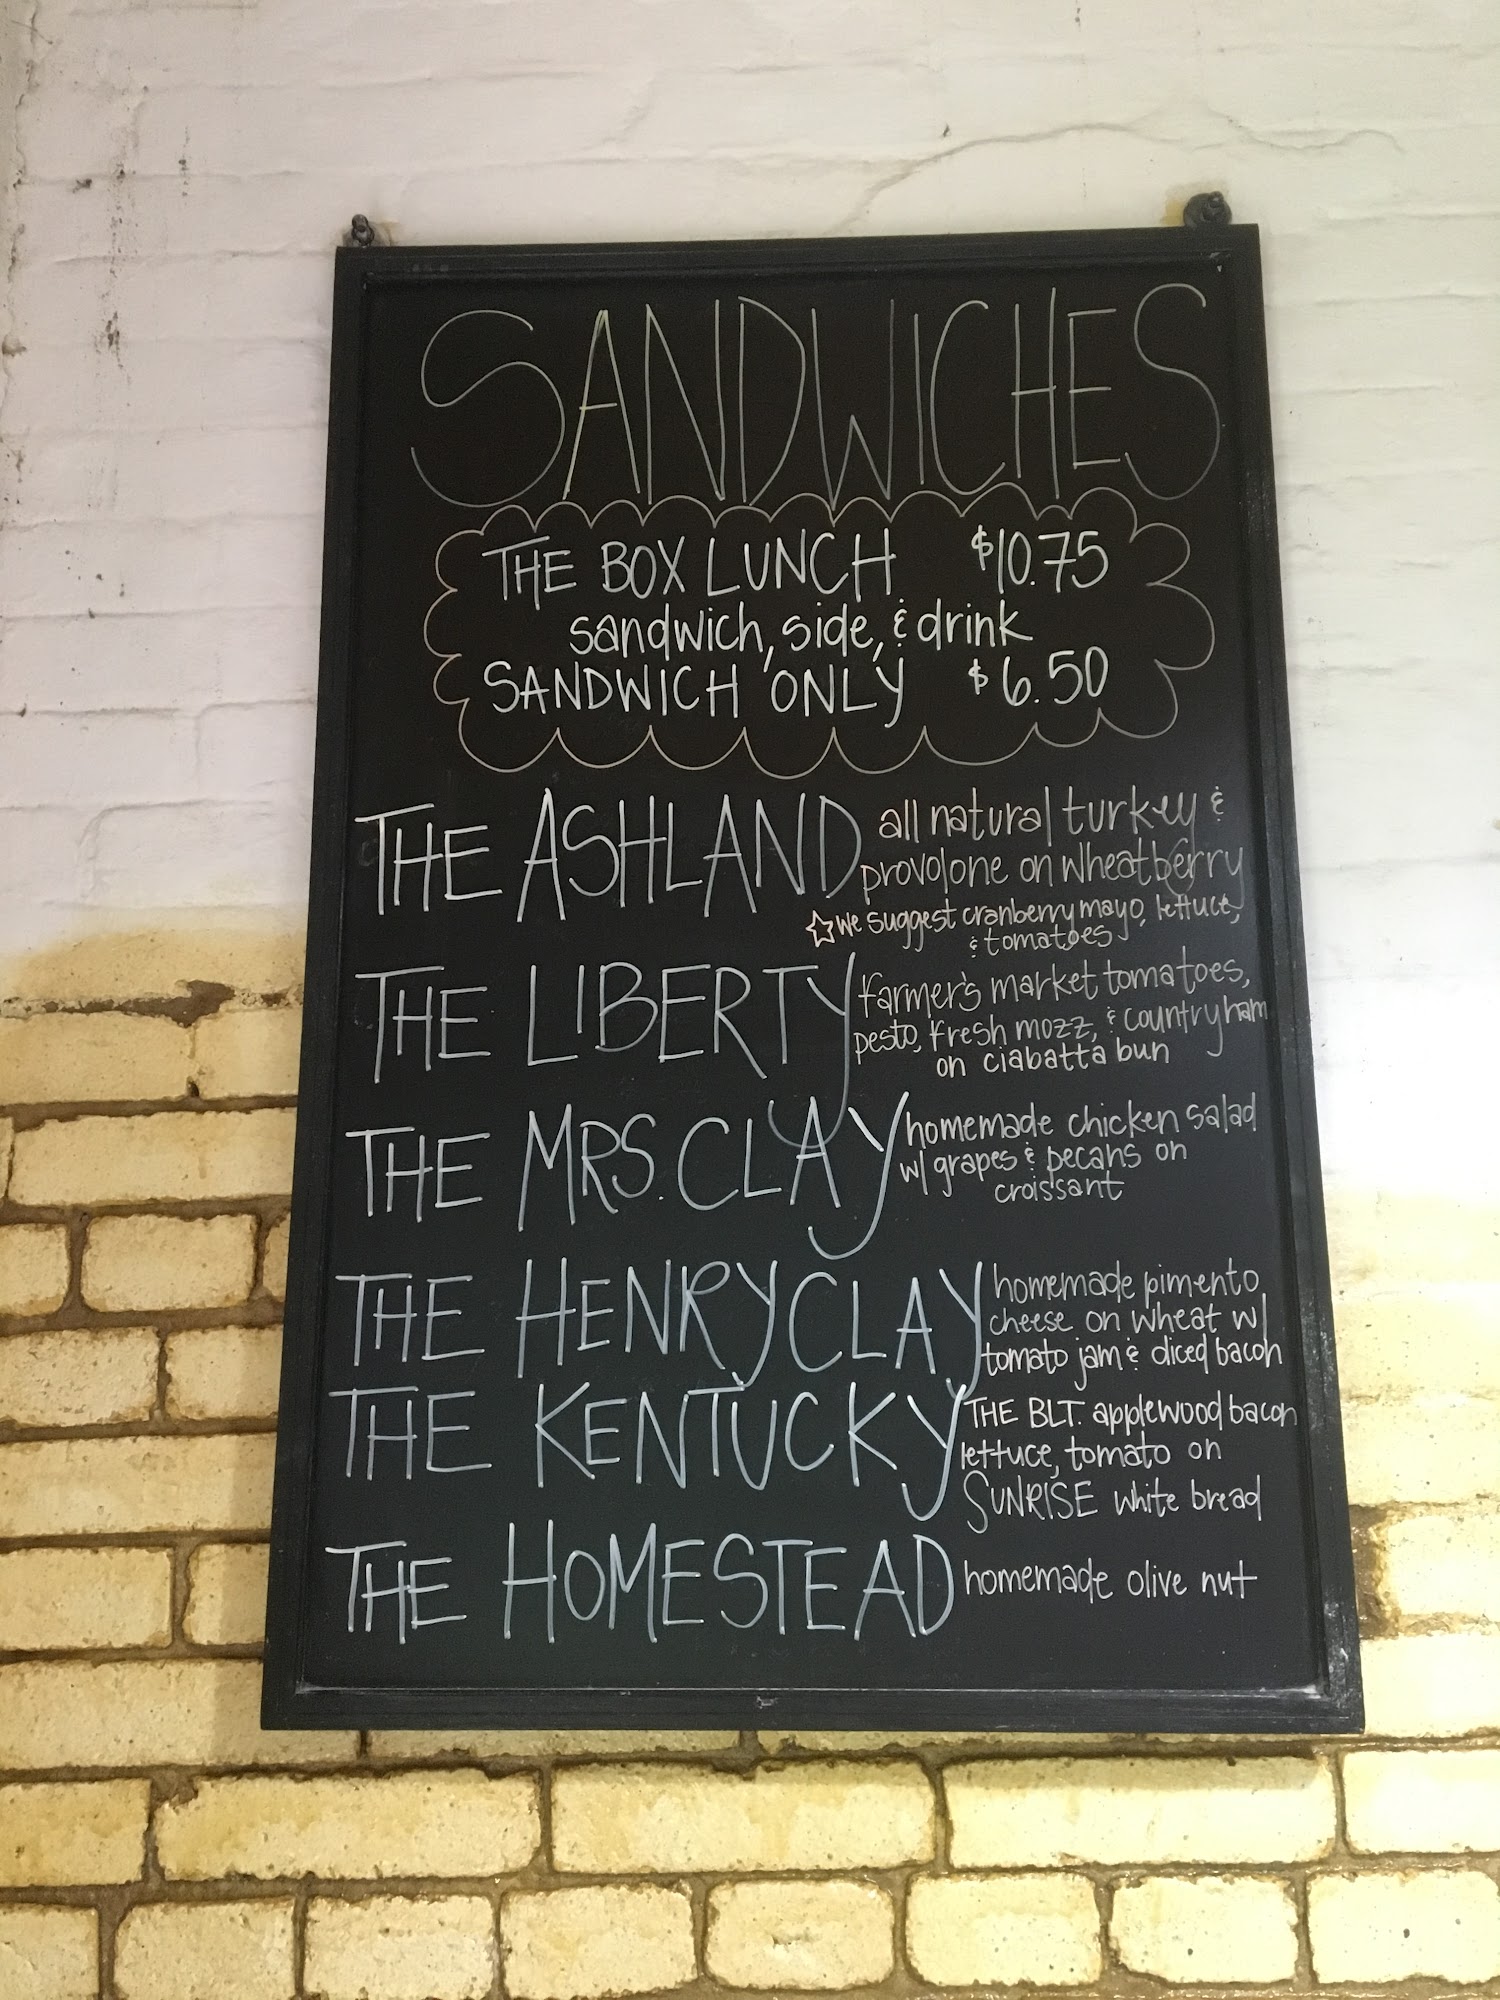 SANDWICHES
THE BOX LUNCH $10.75
sandwich, side, & drink
SANDWICH ONLY $6.50
THE ASHLAND all natural turkey &
provolone on wheatberry
☆we suggest cranberry mayo, lettuce,
& tomatoes
THE LIBERTY farmer's market tomatoes,
pesto, fresh mozz, & country ham
on ciabatta bun
THE MRS. CLAY homemade chicken salad
w/ grapes & pecans on
croissant
THE HENRY CLAY homemade pimento
cheese on wheat w/
tomato jam & diced bacon
THE KENTUCKY THE BLT. applewood bacon
lettuce, tomato on
SUNRISE white bread
THE HOMESTEAD homemade olive nut